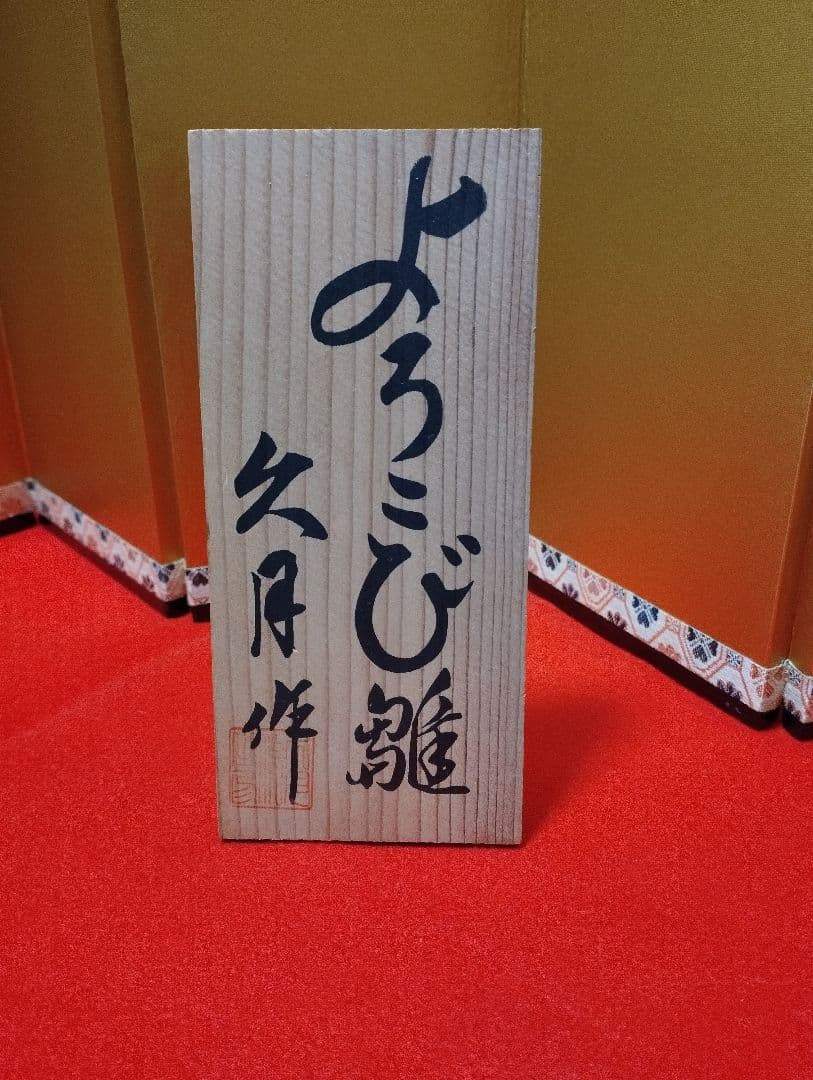 よろこび雛
久月作